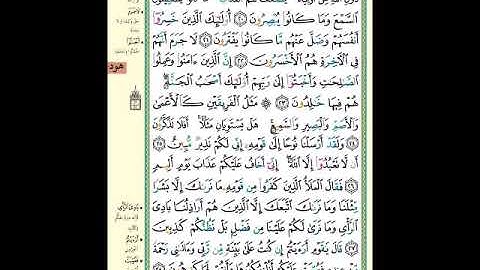 السَّمْعَ وَمَا كَانُوا۟ يُبْصِرُونَ ٢٠ أُو۟لَٰٓئِكَ ٱلَّذِينَ خَسِرُوٓا۟
أَنفُسَهُمْ وَضَلَّ عَنْهُم مَّا كَانُوا۟ يَفْتَرُونَ ٢١ لَا جَرَمَ أَنَّهُمْ
فِى ٱلْءَاخِرَةِ هُمُ ٱلْأَخْسَرُونَ ٢٢ إِنَّ ٱلَّذِينَ ءَامَنُوا۟ وَعَمِلُوا۟
هود
ٱلصَّٰلِحَٰتِ وَأَخْبَتُوٓا۟ إِلَىٰ رَبِّهِمْ أُو۟لَٰٓئِكَ أَصْحَٰبُ ٱلْجَنَّةِ
هُمْ فِيهَا خَٰلِدُونَ ٢٣ مَثَلُ ٱلْفَرِيقَيْنِ كَٱلْأَعْمَىٰ
وَٱلْأَصَمِّ وَٱلْبَصِيرِ وَٱلسَّمِيعِ هَلْ يَسْتَوِيَانِ مَثَلًا أَفَلَا تَذَكَّرُونَ
٢٤ وَلَقَدْ أَرْسَلْنَا نُوحًا إِلَىٰ قَوْمِهِۦٓ إِنِّى لَكُمْ نَذِيرٌ مُّبِينٌ ٢٥
أَن لَّا تَعْبُدُوٓا۟ إِلَّا ٱللَّهَ إِنِّىٓ أَخَافُ عَلَيْكُمْ عَذَابَ يَوْمٍ أَلِيمٍ
٢٦ فَقَالَ ٱلْمَلَأُ ٱلَّذِينَ كَفَرُوا۟ مِن قَوْمِهِۦ مَا نَرَىٰكَ إِلَّا بَشَرًا
مِّثْلَنَا وَمَا نَرَىٰكَ ٱتَّبَعَكَ إِلَّا ٱلَّذِينَ هُمْ أَرَاذِلُنَا بَادِىَ
ٱلرَّأْىِ وَمَا نَرَىٰ لَكُمْ عَلَيْنَا مِن فَضْلٍۭ بَلْ نَظُنُّكُمْ كَٰذِبِينَ
٢٧ قَالَ يَٰقَوْمِ أَرَءَيْتُمْ إِن كُنتُ عَلَىٰ بَيِّنَةٍ مِّن رَّبِّى وَءَاتَىٰنِى رَحْمَةً